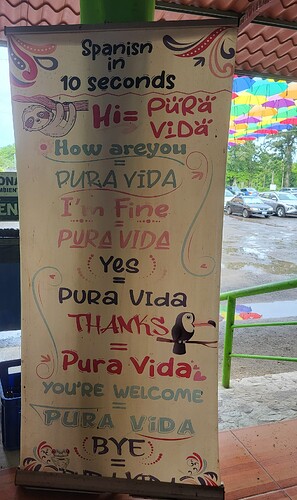 Spanisn
in
10 seconds
Hi= PURA
VIDA
How areyou
=
PURA VIDA
I'm Fine
=
PURA VIDA
Yes
=
PURA VIDA
THANKS
=
Pura Vida
YOU'RE WELCOME
=
PURA VIDA
BYE
=